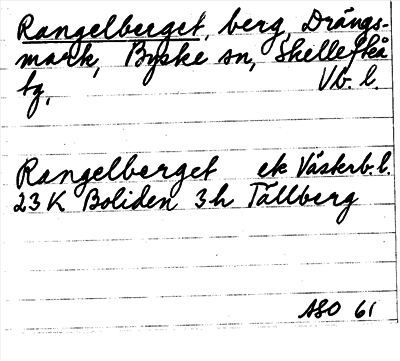 Rangelberget, berg, Drängs-
mark, Byske sn, Skellefteå
tg, Vb. l.
Rangelberget ek Västerb. l.
23 K Boliden 3h Tällberg
ASO 61